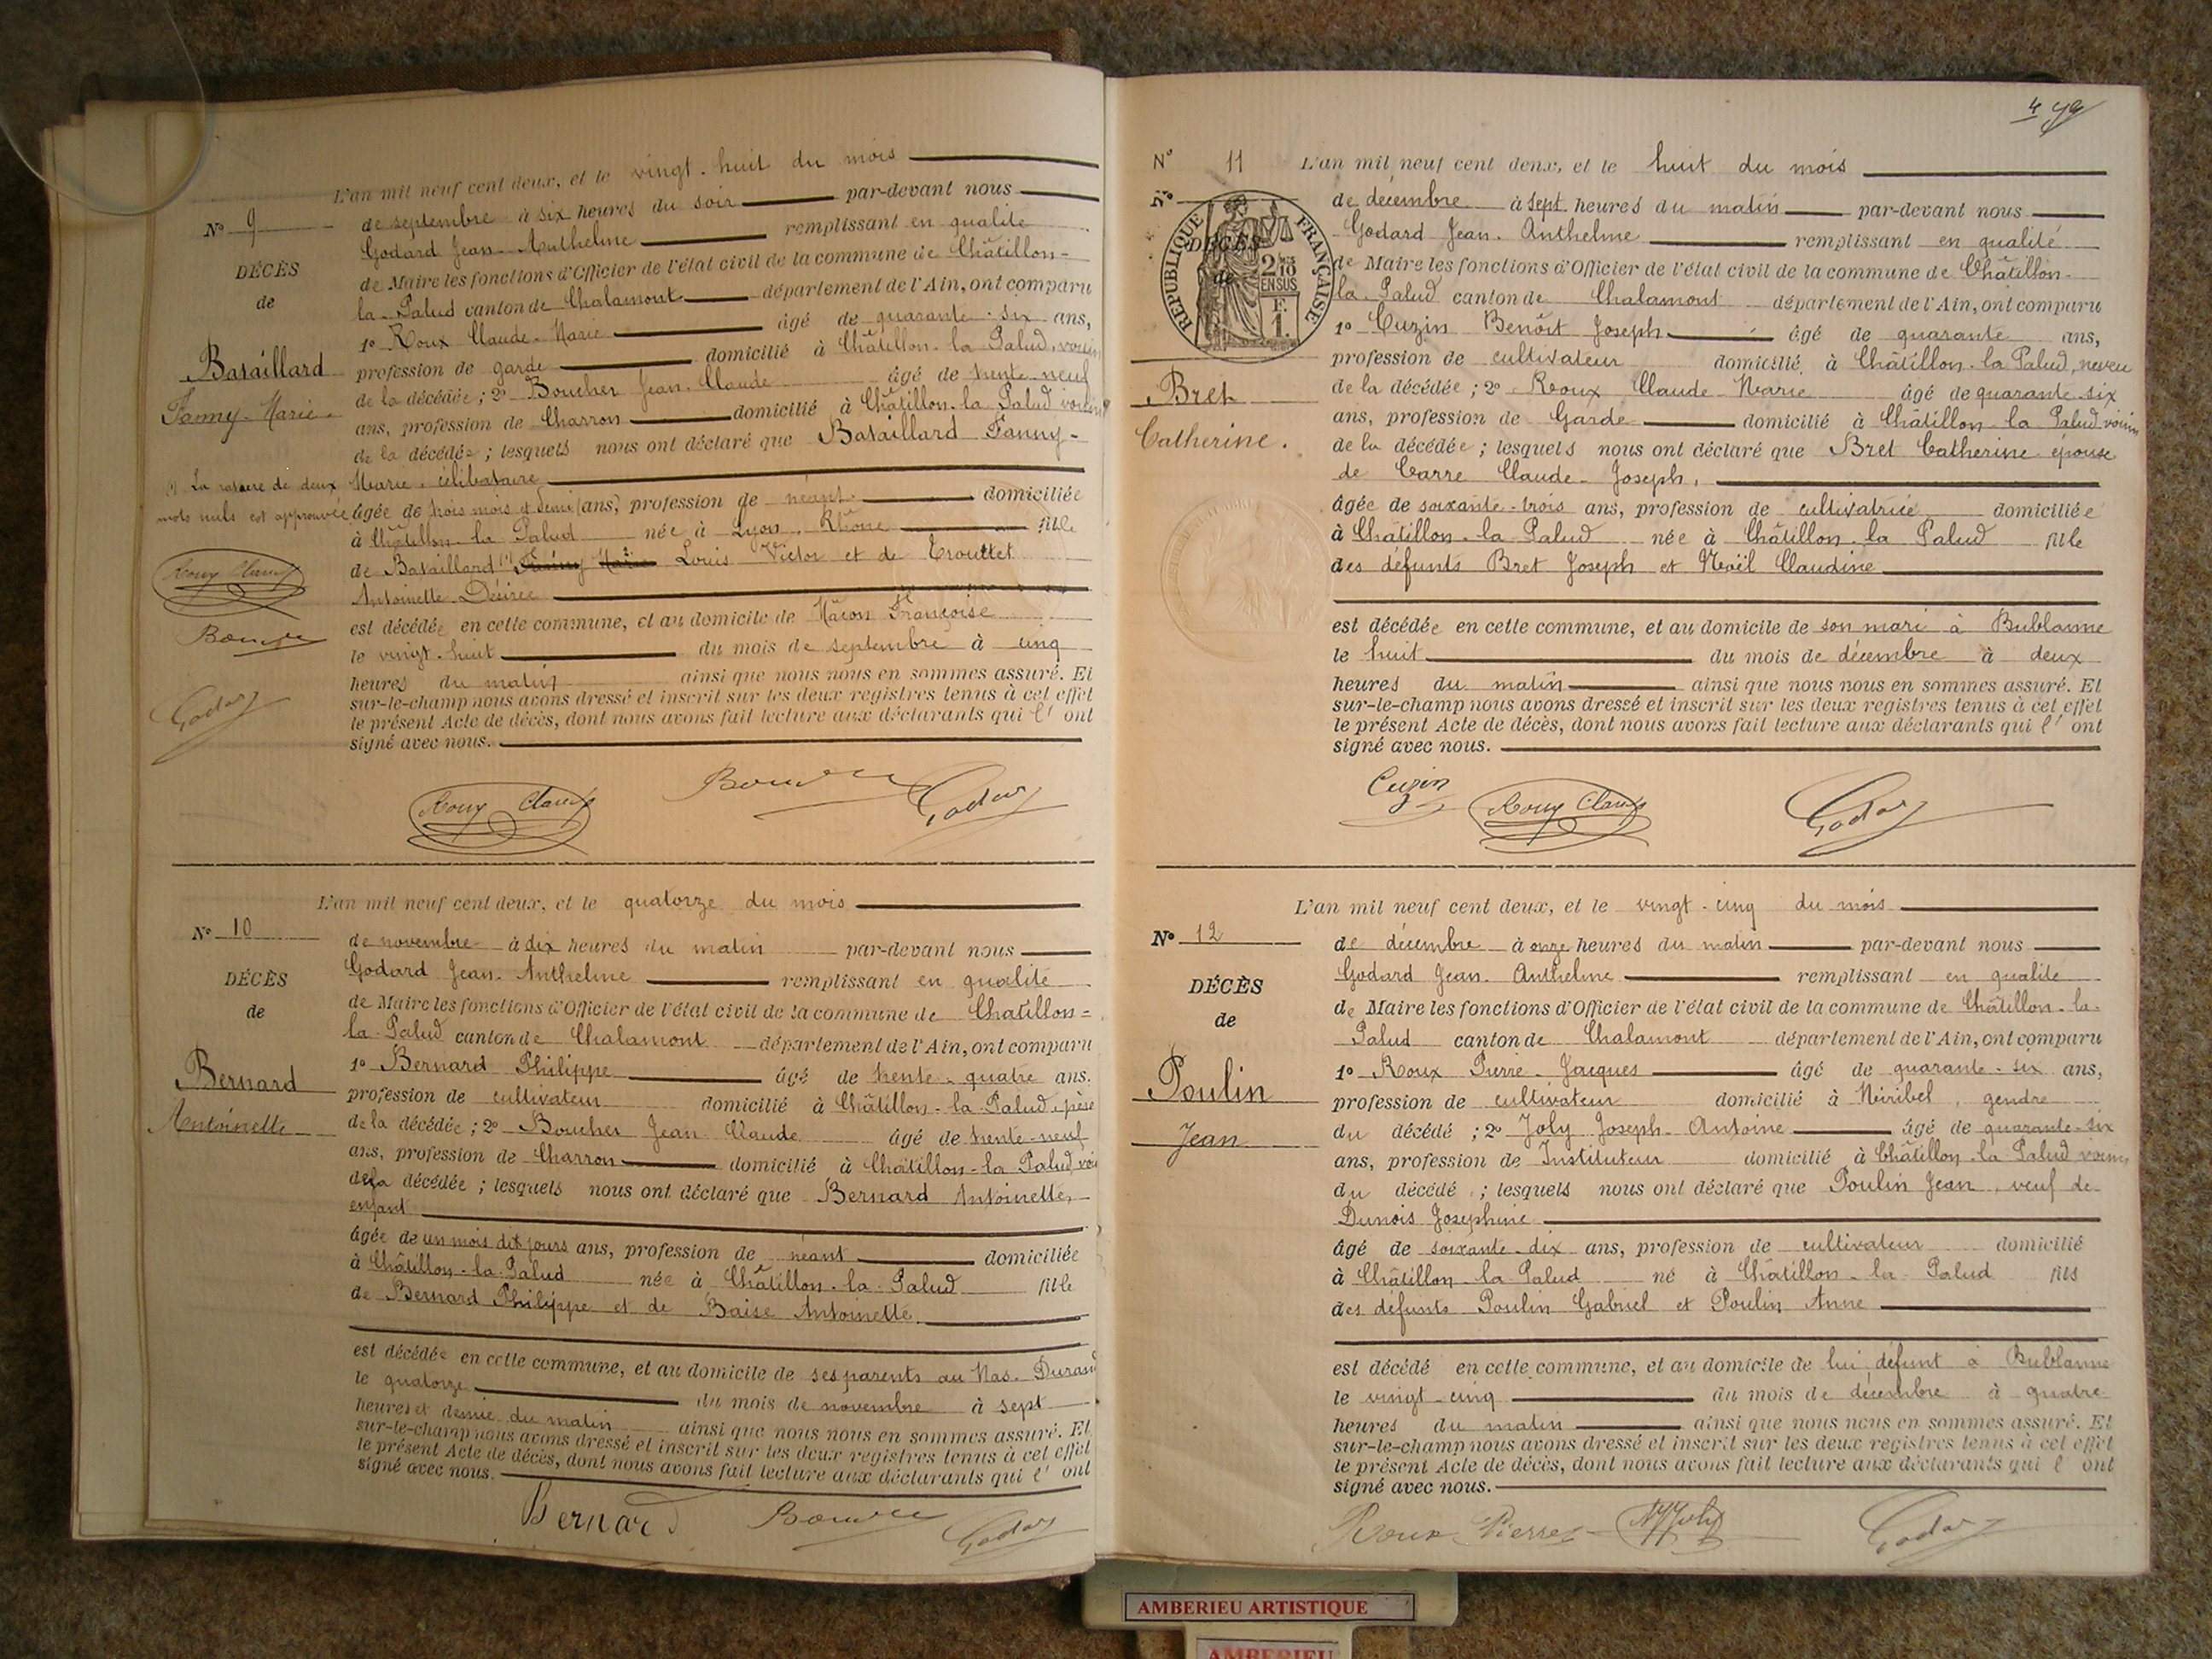 L'an mil neuf cent deux, et le vingt-huit du mois
N° 9
de septembre à six heures du soir par-devant nous
Godard Jean-Anthelme remplissant en qualité
DÉCÈS
de Maire les fonctions d'Officier de l'état civil de la commune de Châtillon-
de
la-Palud canton de Chalamont département de l'Ain, ont comparu
1° Roux Claude-Marie âgé de quarante-six ans,
Bataillard
profession de garde domicilié à Châtillon-la-Palud, voisin
Fanny-Marie
de la décédée ; 2° Boucher Jean-Claude âgé de trente-neuf
ans, profession de Charron domicilié à Châtillon-la-Palud voisin
de la décédée ; lesquels nous ont déclaré que Bataillard Fanny-
Marie, célibataire
(1) La rature de deux
mots nuls est approuvée
âgée de trois mois et demi (ans) profession de néant domiciliée
à Châtillon-la-Palud née à Lyon, Rhône fille
de Bataillard (1) Fanny Marie Louis Victor et de Trouttet
Roux Claude
Antoinette Désirée
est décédée en cette commune, et au domicile de Mâcon Françoise
le vingt-huit du mois de septembre à cinq
heures du matin ainsi que nous nous en sommes assuré. Et
sur-le-champ nous avons dressé et inscrit sur les deux registres tenus à cet effet
Godard
le présent Acte de décès, dont nous avons fait lecture aux déclarants qui l' ont
signé avec nous.
Roux Claude Godard
L'an mil neuf cent deux, et le quatorze du mois
N° 10
de novembre à dix heures du matin par-devant nous
Godard Jean-Anthelme remplissant en qualité
DÉCÈS
de Maire les fonctions d'Officier de l'état civil de la commune de Chatillon=
de
la-Palud canton de Chalamont département de l'Ain, ont comparu
1° Bernard Philippe âgé de trente-quatre ans.
Bernard
profession de cultivateur domicilié à Châtillon-la-Palud, père
Antoinette
de la décédée ; 2° Boucher Jean Claude âgé de trente-neuf
ans, profession de Charron domicilié à Châtillon-la-Palud, voi
de la décédée ; lesquels nous ont déclaré que Bernard Antoinette,
enfant
âgée de un mois dix jours ans, profession de néant domiciliée
à Châtillon-la-Palud née à Châtillon-la-Palud fille
de Bernard Philippe et de Baise Antoinette.
est décédée en cette commune, et au domicile de ses parents au Mas-Durand
le quatorze du mois de novembre à sept
heures et demie du matin ainsi que nous nous en sommes assuré. Et
sur-le-champ nous avons dressé et inscrit sur les deux registres tenus à cet effet
le présent Acte de décès, dont nous avons fait lecture aux déclarants qui l' ont
signé avec nous.
Bernard Godard
4
N° 11 L'an mil neuf cent deux, et le huit du mois
N°
de décembre à sept heures du matin par-devant nous
Godard Jean-Anthelme remplissant en qualité
DÉCÈS
de
RÉPUBLIQUE FRANÇAISE
2/10 EN SUS
F. 1.
de Maire les fonctions d'Officier de l'état civil de la commune de Châtillon-
la-Palud canton de Chalamont département de l'Ain, ont comparu
1° Cuzin Benôit Joseph âgé de quarante ans,
profession de cultivateur domicilié à Châtillon-la-Palud, neveu
Bret
de la décédée ; 2° Roux Claude Marie âgé de quarante-six
ans, profession de Garde domicilié à Châtillon-la-Palud voisin
Catherine.
de la décédée ; lesquels nous ont déclaré que Bret Catherine épouse
de Carre Claude-Joseph,
âgée de soixante-trois ans, profession de cultivatrice domiciliée
à Châtillon-la-Palud née à Châtillon-la-Palud fille
des défunts Bret Joseph et Noël Claudine
est décédée en cette commune, et au domicile de son mari à Bublanne
le huit du mois de décembre à deux
heures du matin ainsi que nous nous en sommes assuré. Et
sur-le-champ nous avons dressé et inscrit sur les deux registres tenus à cet effet
le présent Acte de décès, dont nous avons fait lecture aux déclarants qui l' ont
signé avec nous.
Cuzin Roux Claude Godard
L'an mil neuf cent deux, et le vingt-cinq du mois
N° 12
de décembre à onze heures du matin par-devant nous
Godard Jean-Anthelme remplissant en qualité
DÉCÈS
de Maire les fonctions d'Officier de l'état civil de la commune de Châtillon-la-
de
Palud canton de Chalamont département de l'Ain, ont comparu
1° Roux Pierre-Jacques âgé de quarante-six ans,
Poulin
profession de cultivateur domicilié à Miribel, gendre
Jean
du décédé ; 2° Joly Joseph-Antoine âgé de quarante-six
ans, profession de Instituteur domicilié à Châtillon-la-Palud voisin
du décédé ; lesquels nous ont déclaré que Poulin Jean, veuf de
Dunois Josephine
âgé de soixante-dix ans, profession de cultivateur domicilié
à Châtillon-la-Palud né à Châtillon-la-Palud fils
des défunts Poulin Gabriel et Poulin Anne
est décédé en cette commune, et au domicile de lui défunt à Bublanne
le vingt-cinq du mois de décembre à quatre
heures du matin ainsi que nous nous en sommes assuré. Et
sur-le-champ nous avons dressé et inscrit sur les deux registres tenus à cet effet
le présent Acte de décès, dont nous avons fait lecture aux déclarants qui l ont
signé avec nous.
Roux Pierre Joly Godard
AMBERIEU ARTISTIQUE
AMBERIEU